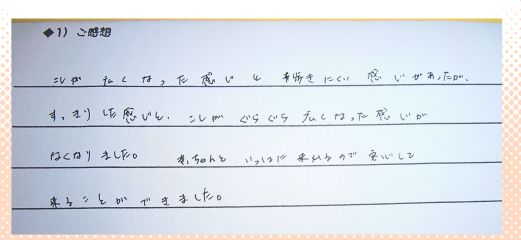 ◆1) ご感想
こしが 広くなった感じと 歩きにくい 感じがあったが、
すっきりした感じと、こしが ぐらぐら 広くなった感じが
なくなりました。 赤ちゃんと いっしょに 来れるので 安心して
来ることができました。